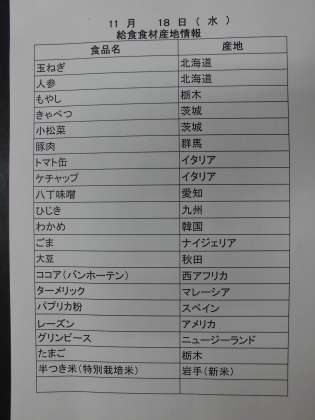 11 月 18 日 ( 水 )
給食食材産地情報
食品名 産地
玉ねぎ 北海道
人参 北海道
もやし 栃木
きゃべつ 茨城
小松菜 茨城
豚肉 群馬
トマト缶 イタリア
ケチャップ イタリア
八丁味噌 愛知
ひじき 九州
わかめ 韓国
ごま ナイジェリア
大豆 秋田
ココア(バンホーテン) 西アフリカ
ターメリック マレーシア
パプリカ粉 スペイン
レーズン アメリカ
グリンピース ニュージーランド
たまご 栃木
半つき米(特別栽培米) 岩手(新米)